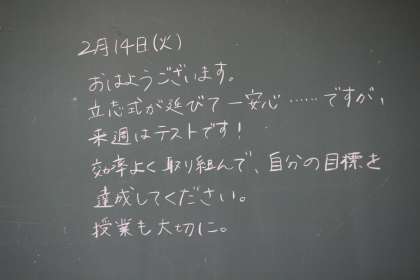 2月14日(火)
おはようございます。
立志式が延びて一安心……ですが、
来週はテストです!
効率よく取り組んで、自分の目標を
達成してください。
授業も大切に。